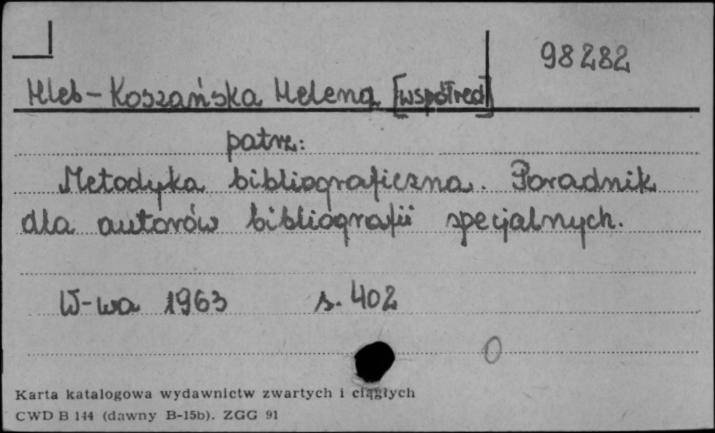 98282
Hleb-Koszańska Helena [współred]
patrz:
Metodyka bibliograficzna. Poradnik
dla autorów bibliografii specjalnych.
W-wa 1963 s. 402
0
Karta katalogowa wydawnictw zwartych i ciągłych
CWD B 144 (dawny B-15b). ZGG 91